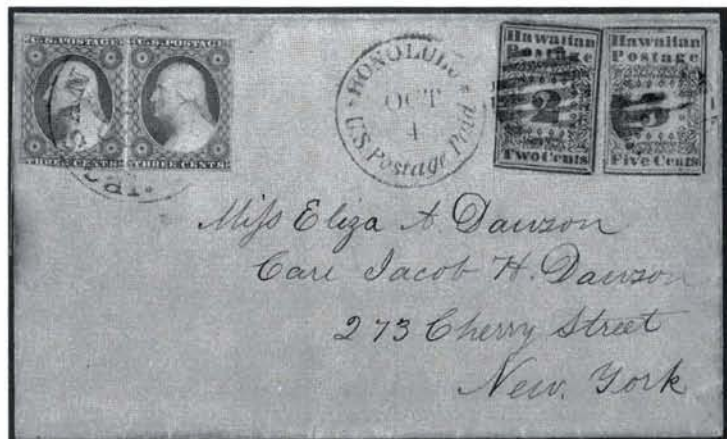 U.S. POSTAGE U.S. POSTAGE
THREE CENTS THREE CENTS
SAN
HONOLULU
OCT
4
U.S. Postage Paid
Hawaiian
Postage
2
Two Cents
Hawaiian
Postage
5
Five Cents
Miss Eliza A. Dawson
Care Jacob H. Dawson
273 Cherry Street
New. York